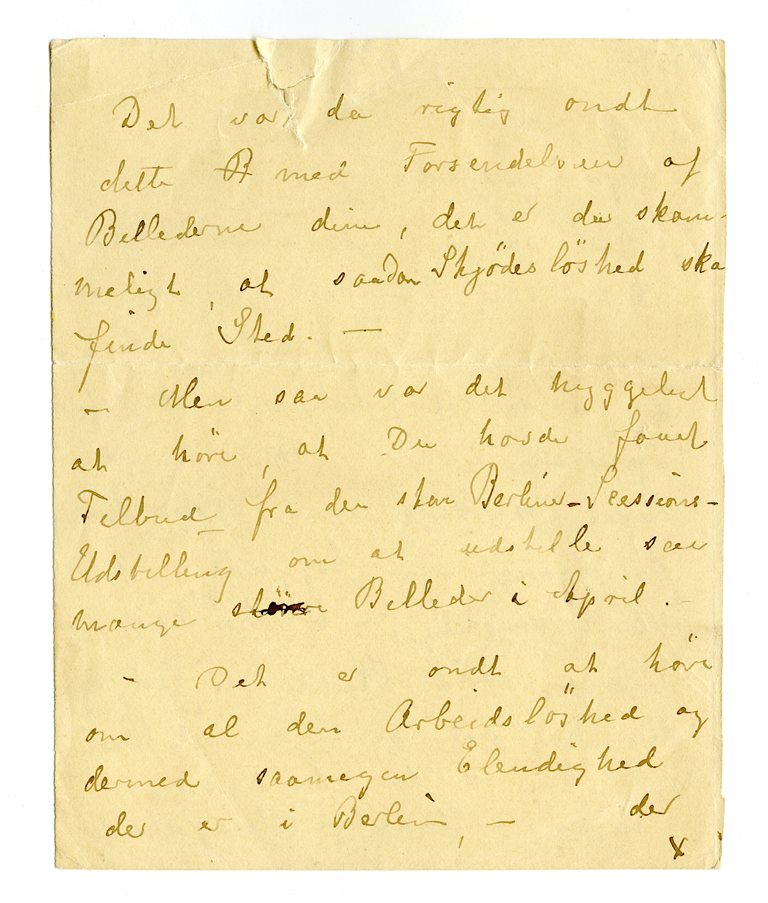 Det var da rigtig ondt
dette B med Forsendelsen af
Billederne dine, det er da skam-
meligt, at saadan Skjödeslöshed ska
finde Sted. —
— Men saa var det hyggeligt
at höre, at Du havde faaet
Tilbud fra den store Berliner-Scessions-
Udstilling om at udstille saa
mange större Billeder i April. —
- Det er ondt at höre
om al den Arbeidslöshed og
dermed saamegen Elendighed
der er i Berlin, — der
x